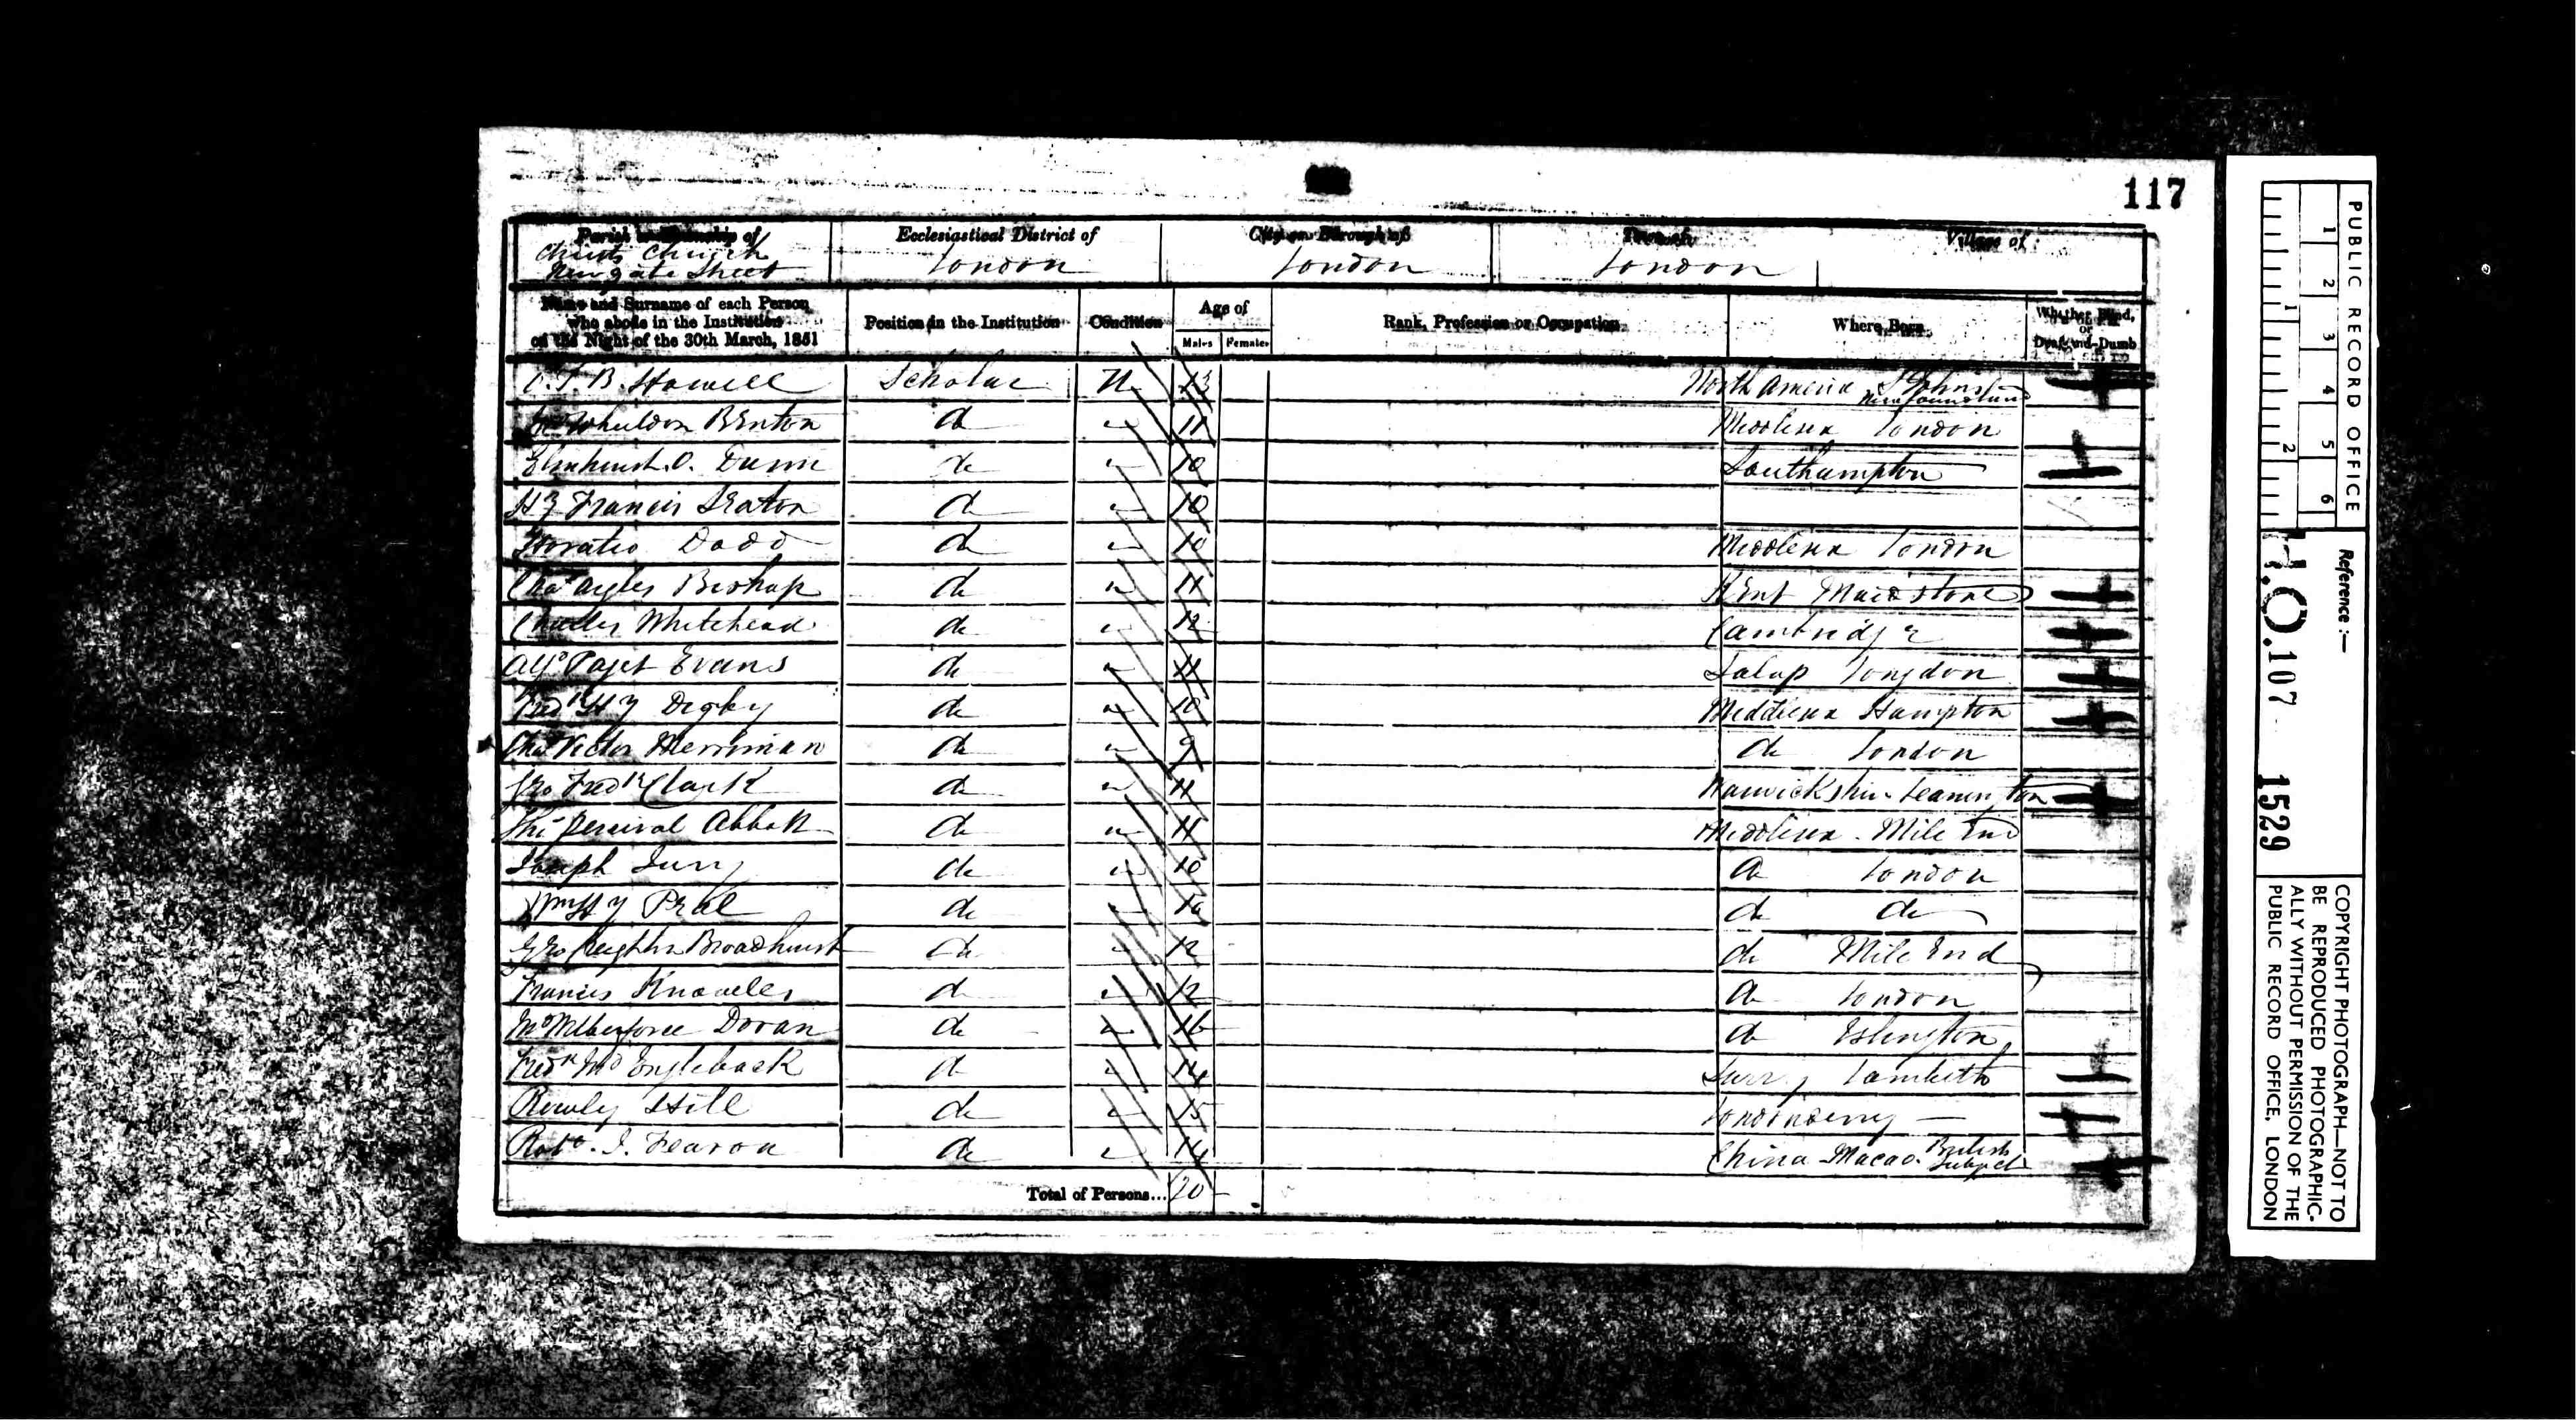 117
Parish or Township of
Christs Church
Newgate Street
Ecclesiastical District of
London
City or Borough of
London
Town of
London
Village of
Name and Surname of each Person
who abode in the Institution
on the Night of the 30th March, 1851
Position in the Institution
Condition
Age of
Males Females
Rank, Profession or Occupation
Where Born
Whether Blind,
or
Deaf-and-Dumb
B. Howell Scholar 13 North America St Johns Newfoundland
Whuldon Benton do 11 Middlesex London
Elmhurst O. Dunn do 10 Southampton
Hy Francis Seaton do 10
Horatio Dodd do 10 Middlesex London
Chas Ayles Bishop do 11 Kent Maidstone
Charles Whitehead do 12 Cambridge
Alfd Paget Evans do 11 Salop Longdon
Fredk Hy Digby do 10 Middlesex Hampton
Chas Victor Merriman do 9 do London
Geo Fredk Clark do 11 Warwickshire Leamington
Percival Abbott do 11 Middlesex Mile End
Joseph do 10 do London
Wm Hy do do do
Geo Broadhurst do 12 do Mile End
Francis Knowles do 12 do London
Wilberforce Doran do 16 do Islington
Fredk Engleback do 14 Surry Lambeth
Rowley Hill do 15 Londonderry
Robt. J. Fearon do 14 China Macao. British Subject
Total of Persons... 20 -
PUBLIC RECORD OFFICE
1 2 3 4 5 6
1 2
Reference :—
H.O. 107 1529
COPYRIGHT PHOTOGRAPH—NOT TO
BE REPRODUCED PHOTOGRAPHIC-
ALLY WITHOUT PERMISSION OF THE
PUBLIC RECORD OFFICE, LONDON